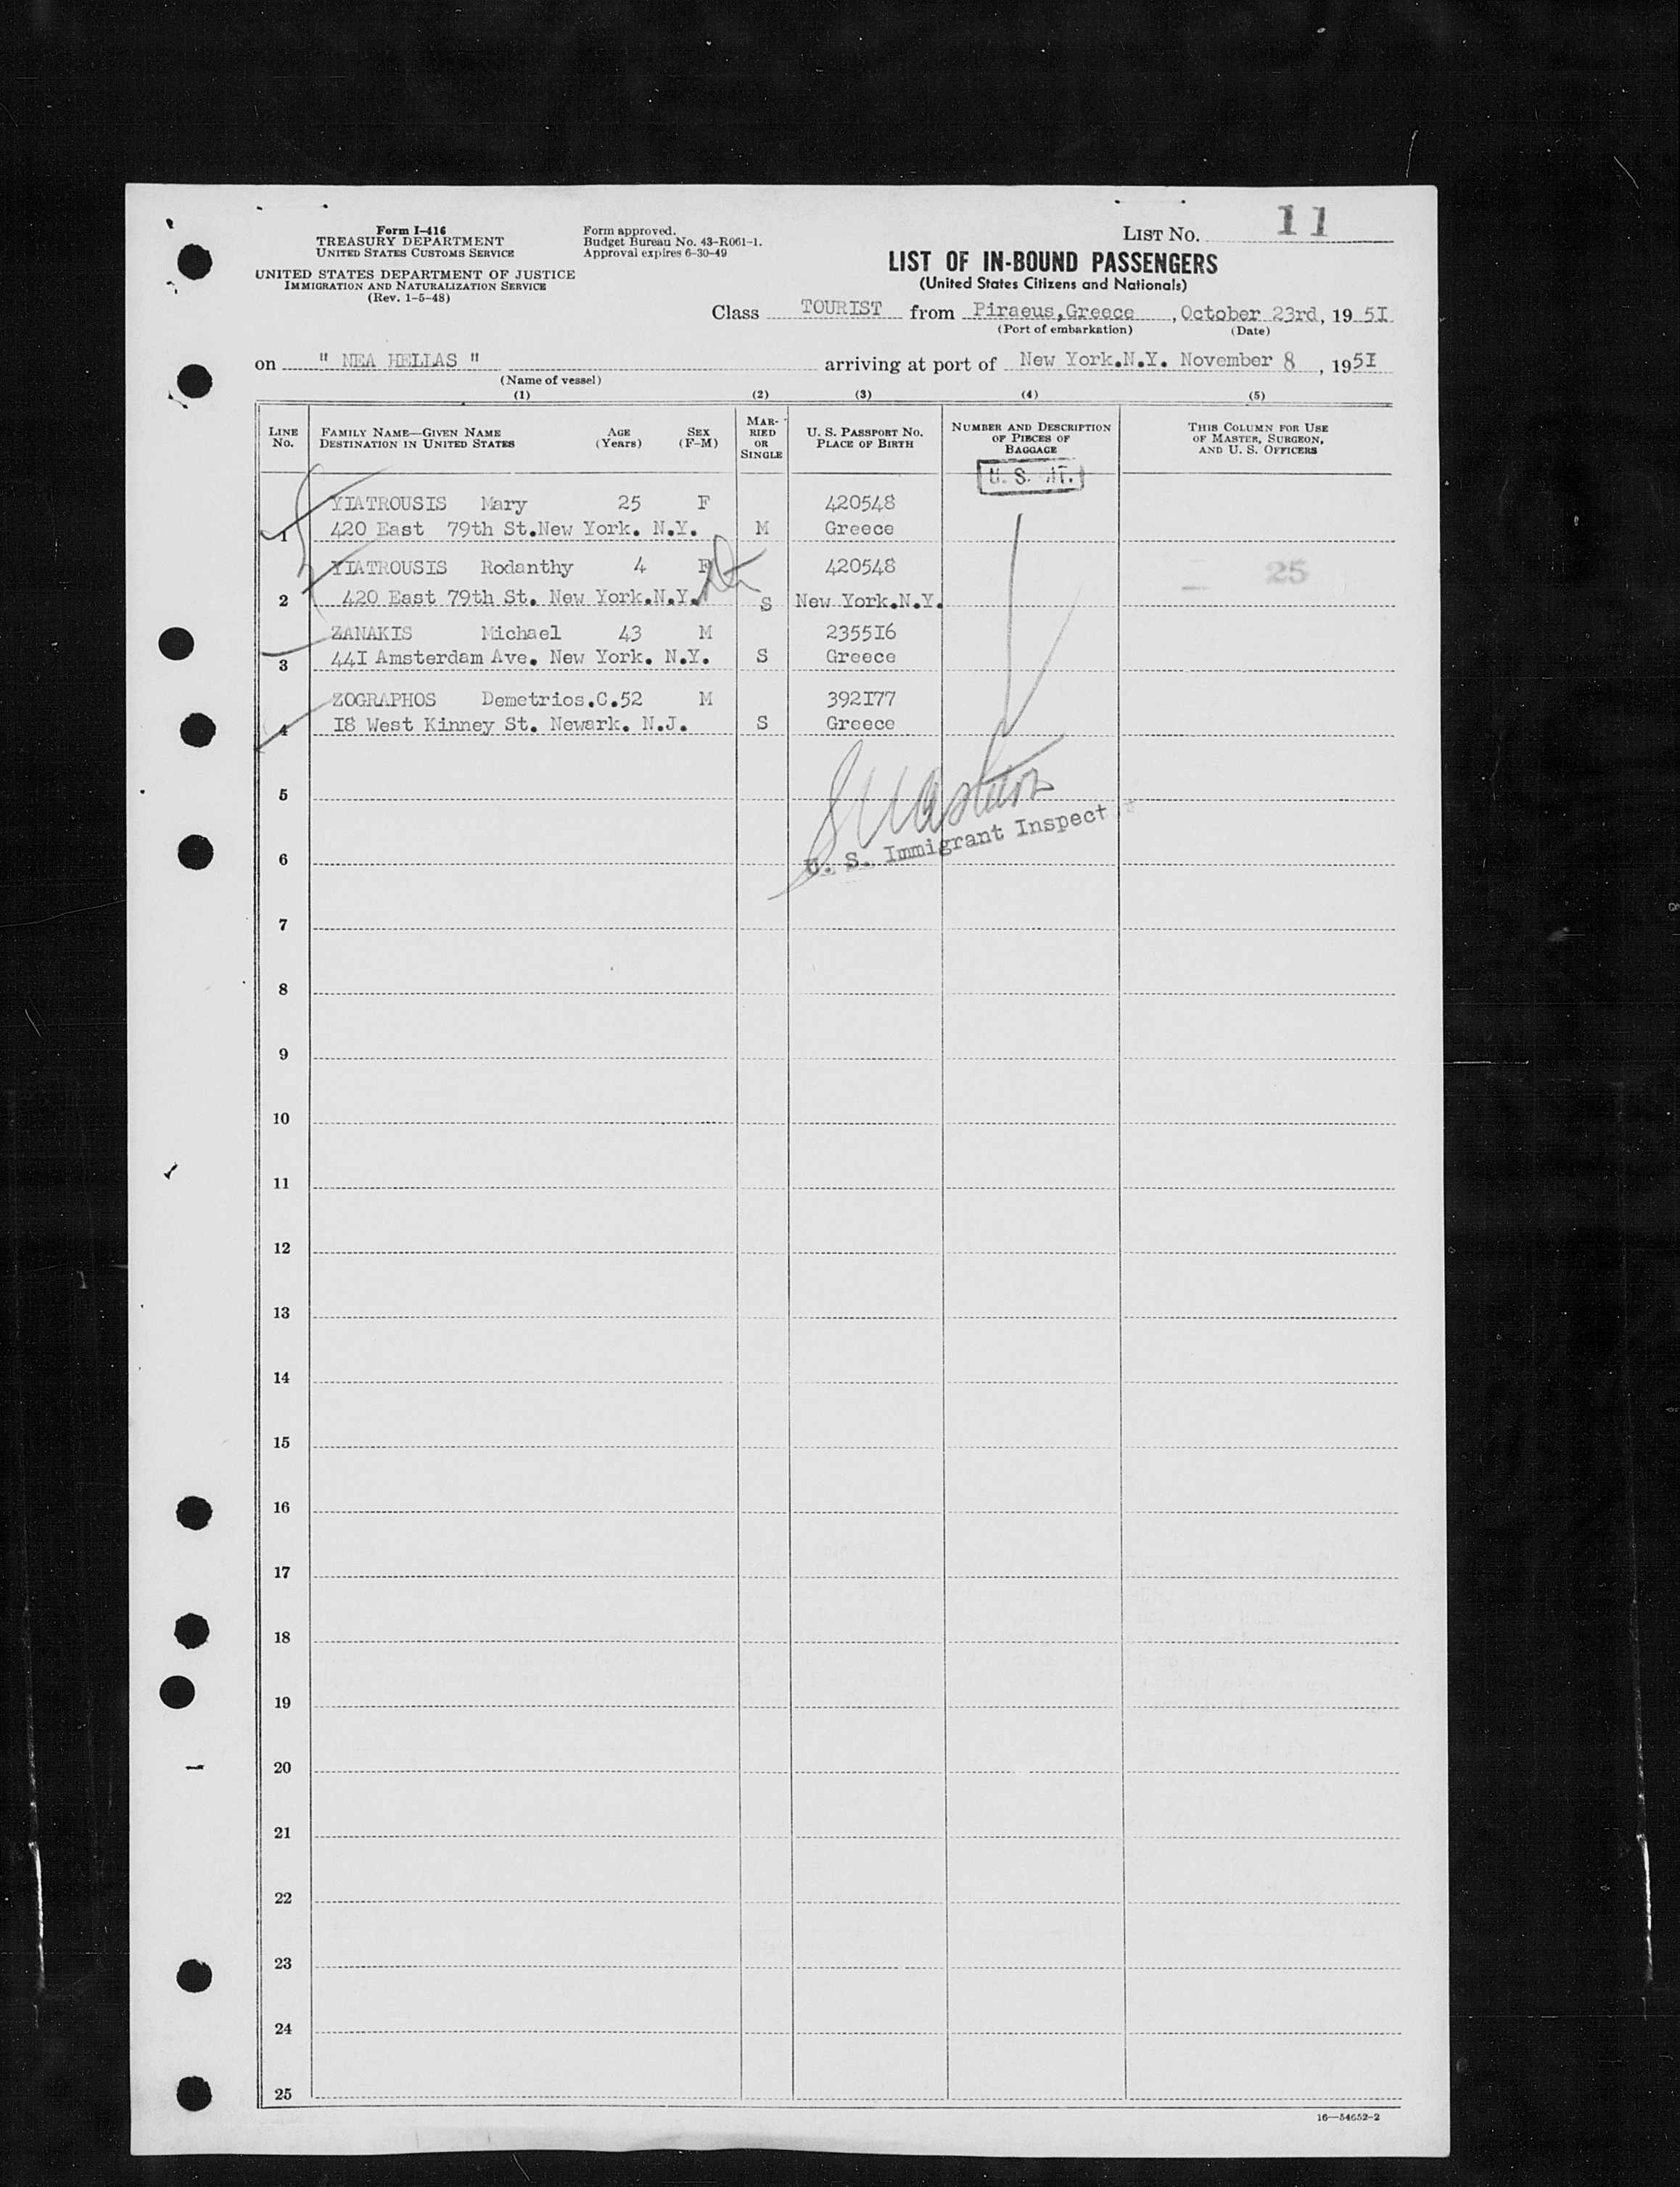 Form I-416
TREASURY DEPARTMENT
UNITED STATES CUSTOMS SERVICE
UNITED STATES DEPARTMENT OF JUSTICE
IMMIGRATION AND NATURALIZATION SERVICE
(Rev. 1-5-48)
Form approved.
Budget Bureau No. 43-R061-1.
Approval expires 6-30-49
LIST NO. 11
LIST OF IN-BOUND PASSENGERS
(United States Citizens and Nationals)
Class TOURIST from Piraeus,Greece , October 23rd, 19 5I
(Port of embarkation) (Date)
on " NEA HELLAS " arriving at port of New York.N.Y. November 8 , 195I
(Name of vessel)
(1) (2) (3) (4) (5)
LINE No. FAMILY NAME—GIVEN NAME DESTINATION IN UNITED STATES AGE (Years) SEX (F-M) MARRIED OR SINGLE U. S. PASSPORT NO. PLACE OF BIRTH NUMBER AND DESCRIPTION OF PIECES OF BAGGAGE THIS COLUMN FOR USE OF MASTER, SURGEON, AND U. S. OFFICERS
U. S.
YIATROUSIS Mary 25 F 420548
1 420 East 79th St.New York. N.Y. M Greece
YIATROUSIS Rodanthy 4 F 420548 25
2 420 East 79th St. New York.N.Y. S New York.N.Y.
ZANAKIS Michael 43 M 2355I6
3 44I Amsterdam Ave. New York. N.Y. S Greece
ZOGRAPHOS Demetrios.C.52 M 392I77
4 I8 West Kinney St. Newark. N.J. S Greece
5
U. S. Immigrant Inspect
6
7
8
9
10
11
12
13
14
15
16
17
18
19
20
21
22
23
24
25
16—54652-2